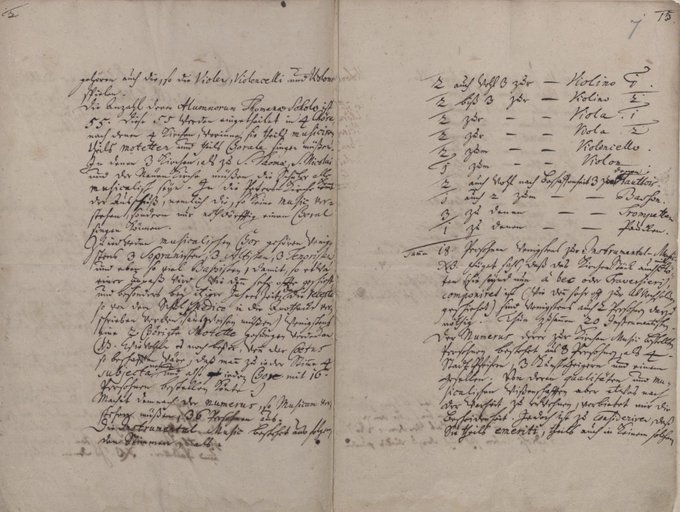 15
7
gehören auch die, so die Violen, Violoncelli und Violons
spielen.
Die Anzahl derer Alumnorum Thomanae Scholae ist
55. Diese 55 werden eingetheilet in 4 Chöre,
nach denen 4 Kirchen, worinne sie theils musiciren,
theils motetten und theils Chorale singen müßen.
In denen 3 Kirchen, als zu S. Thomae, S. Nicolai
und der Neuen Kirche müßen die Schüler alle
musicalisch seyn. In die Peters-Kirche kömmt
der Ausschuß, nemlich die, so keine music ver-
stehen, sondern nur nothdörfftig einen Choral
singen können.
Zu iedweden musicalischen Chor gehören wenig-
stens 3 Sopranisten, 3 Altisten, 3 Tenoristen,
und eben so viel Baßisten, damit, so etwa
einer unpaß wird (wie denn sehr offte geschieht,
und besonders bey itziger Jahres Zeit, da die recepte,
so von dem Schul Medico in die Apothecke ver-
schrieben werden, es ausweisen müßen) wenigstens
eine 2 Chörigte Motette gesungen werden kan.
(NB. Wiewohln es noch beßer, wenn der Coetus
so beschaffen wäre, daß mann zu ieder Stimme 4
subjecta nehmen, und also ieden Chor mit 16.
Persohnen bestellen könte.)
Machet demnach der numerus, so Musicam ver-
stehen müßen, 36 Persohnen aus.
Die Instrumental Music bestehet aus folgen-
den Stimmen; als:
2 auch wohl 3 zur — Violino 1.
2 biß 3 zur — Violino 2.
2 zur — — Viola 1.
2 zur — — Viola 2.
2 zum — — Violoncello.
1 zum — — Violon.
2 auch wohl nach Beschaffenheit 3 zu denen Hautbois
1 auch 2 zum — — Basson.
3 zu denen — — Trompeten.
1 zu denen — — Paucken.
Summa 18. Persohnen wenigstens zur Instrumental-Music
NB. füget sichs, daß das Kirchen Stück auch mit Flö-
ten, (sie seynd nun à bec oder Traversieri),
componiret ist (wie denn sehr offt zur Abwechselung
geschiehet) sind wenigstens auch 2 Persohnen darzu
nöthig. Thun zusammen 20 Instrumentisten.
Der Numerus derer zur Kirchen Music bestellten
Persohnen bestehet aus 8 Persohnen, als 4.
Stadt Pfeifern, 3 Kunst Geigern und einem
Gesellen. Von deren qualitäten und mu-
sicalischen Wißenschafften aber etwas nach
der Warheit zu erwehnen, verbietet mir die
Bescheidenheit. Jedoch ist zu consideriren, daß
Sie theils emeriti, theils auch in keinem solchen